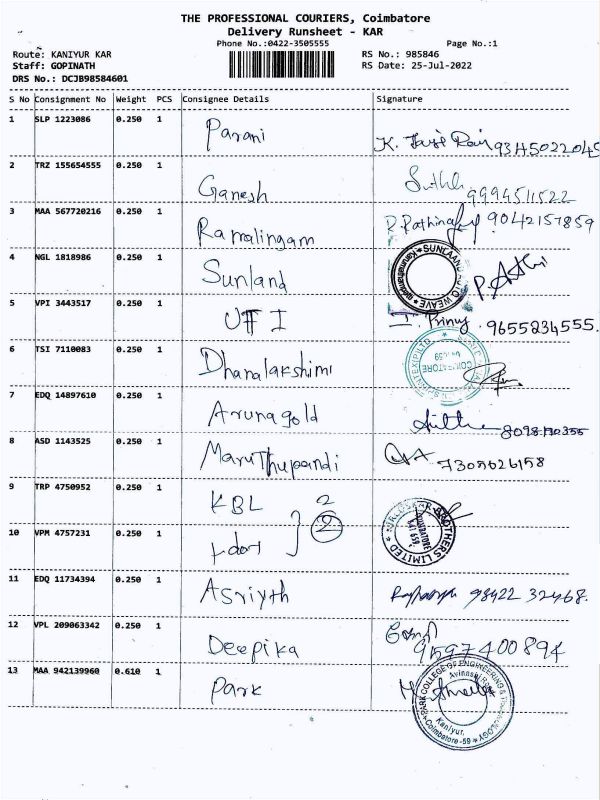 THE PROFESSIONAL COURIERS, Coimbatore
Delivery Runsheet - KAR
Phone No.:0422-3505555 Page No.:1
Route: KANIYUR KAR RS No.: 985846
Staff: GOPINATH RS Date: 25-Jul-2022
DRS No.: DCJB98584601
S No Consignment No Weight PCS Consignee Details Signature
1 SLP 1223086 0.250 1 Parani K.
2 TRZ 155654555 0.250 1 Ganesh 9994511522
3 MAA 567720216 0.250 1 Ramalingam 9042157859
4 NGL 1818986 0.250 1 Sunland
5 VPI 3443517 0.250 1 9655234555.
6 TSI 7110083 0.250 1 Dhanalakshimi
7 EDQ 14897610 0.250 1 Arunagold
8 ASD 1143525 0.250 1 Maruthupandi 7305626158
9 TRP 4750952 0.250 1 KBL 2
10 VPM 4757231 0.250 1 2
11 EDQ 11734394 0.250 1 98422 32468.
12 VPL 209063342 0.250 1 Deepika 9597400894
13 MAA 942139960 0.610 1 Park
PARK COLLEGE OF ENGINEERING &
Kaniyur,
Coimbatore-59